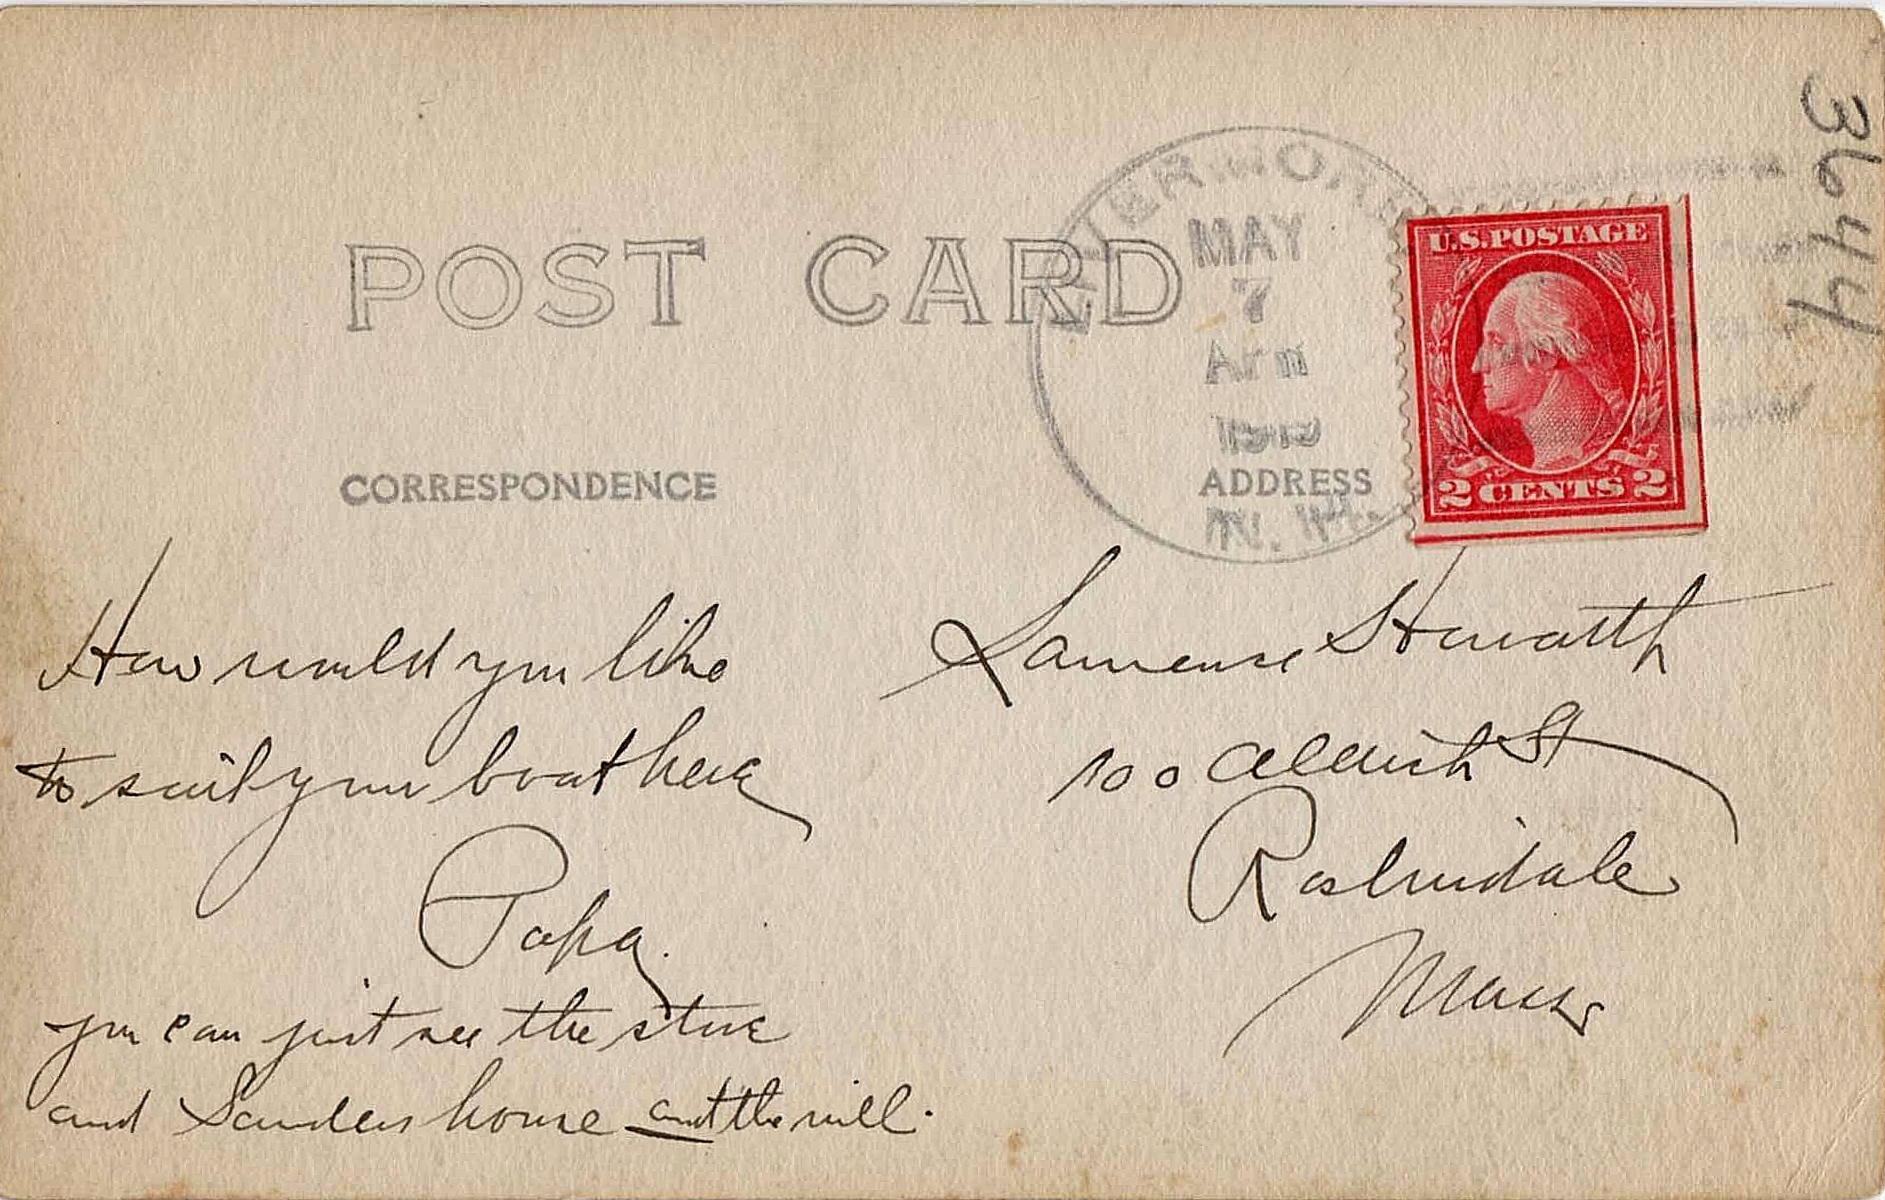 POST CARD
MAY
7
N. H.
U.S. POSTAGE
2 CENTS 2
3644
CORRESPONDENCE
ADDRESS
How would you like
to sail your boat here
Papa.
you can just see the store
and Sanders house and the mill.
Lawrence Howarth
100 Aldrich St
Roslindale
Mass